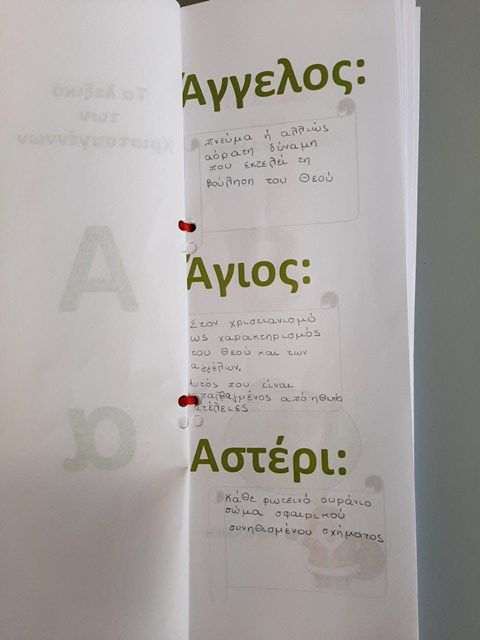 Το λεξικό
των
Χριστουγέννων
Α
α
Άγγελος:
πνεύμα ή αλλιώς
αόρατη δύναμη
που εκτελεί τη
βούληση του Θεού
Άγιος:
Στον χριστιανισμό
ως χαρακτηρισμός
του Θεού και των
αγγέλων.
αυτός που είναι
απαλλαγμένος από ηθικές
ατέλειες
Αστέρι:
κάθε φωτεινό ουράνιο
σώμα σφαιρικού
συνηθισμένου σχήματος